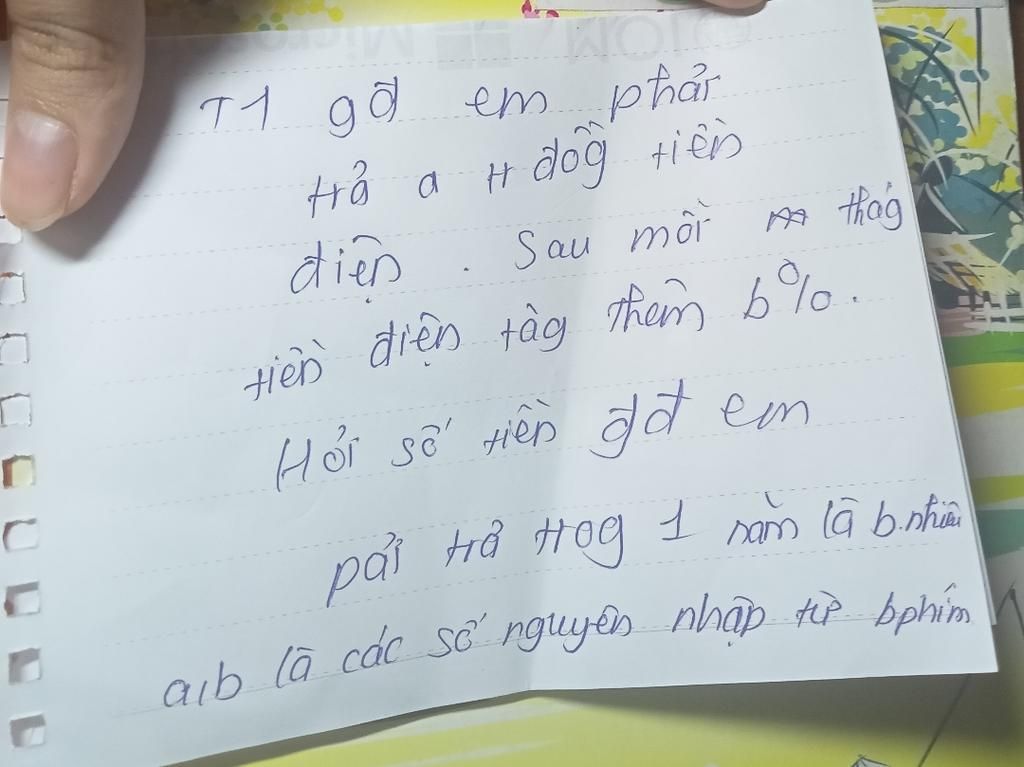 T1 gđ em phải
trả a tr đồg tiền
điện. Sau mỗi thág
tiền điện tăg thêm b%.
Hỏi số tiền gđ em
pải trả trog 1 năm là b.nhiêu
a,b là các số nguyên nhập từ bphím